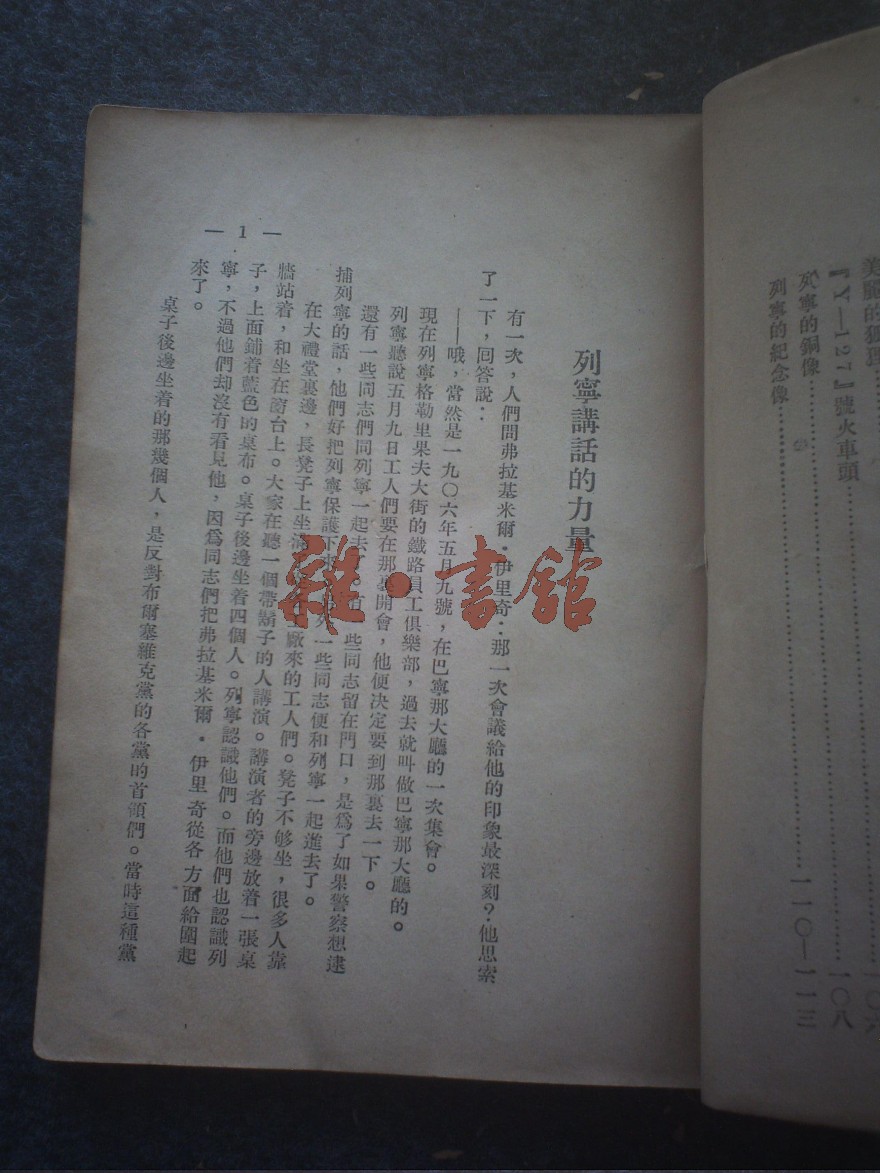 美麗的狐狸……………………一〇六
『Y—127』號火車頭……………………一〇八
列寧的銅像……………………
列寧的紀念像……………………一一〇—一一三
列寧講話的力量
有一次，人們問弗拉基米爾・伊里奇：那一次會議給他的印象最深刻？他思索
了一下，回答說：
——哦，當然是一九〇六年五月九號，在巴寧那大廳的一次集會。
現在列寧格勒里果夫大街的鐵路員工俱樂部，過去就叫做巴寧那大廳的。
列寧聽說五月九日工人們要在那裏開會，他便決定要到那裏去一下。
還有一些同志們同列寧一起去了。一些同志留在門口，是爲了如果警察想逮
捕列寧的話，他們好把列寧保護下來。一些同志便和列寧一起進去了。
在大禮堂裏邊，長凳子上坐滿廠來的工人們。凳子不够坐，很多人靠
牆站着，和坐在窗台上。大家在聽一個帶鬍子的人講演。講演者的旁邊放着一張桌
子，上面鋪着藍色的桌布。桌子後邊坐着四個人。列寧認識他們。而他們也認識列
寧，不過他們却沒有看見他，因爲同志們把弗拉基米爾・伊里奇從各方面給圍起
來了。
桌子後邊坐着的那幾個人，是反對布爾塞維克黨的各黨的首領們。當時這種黨
— 1 —
雜・書館